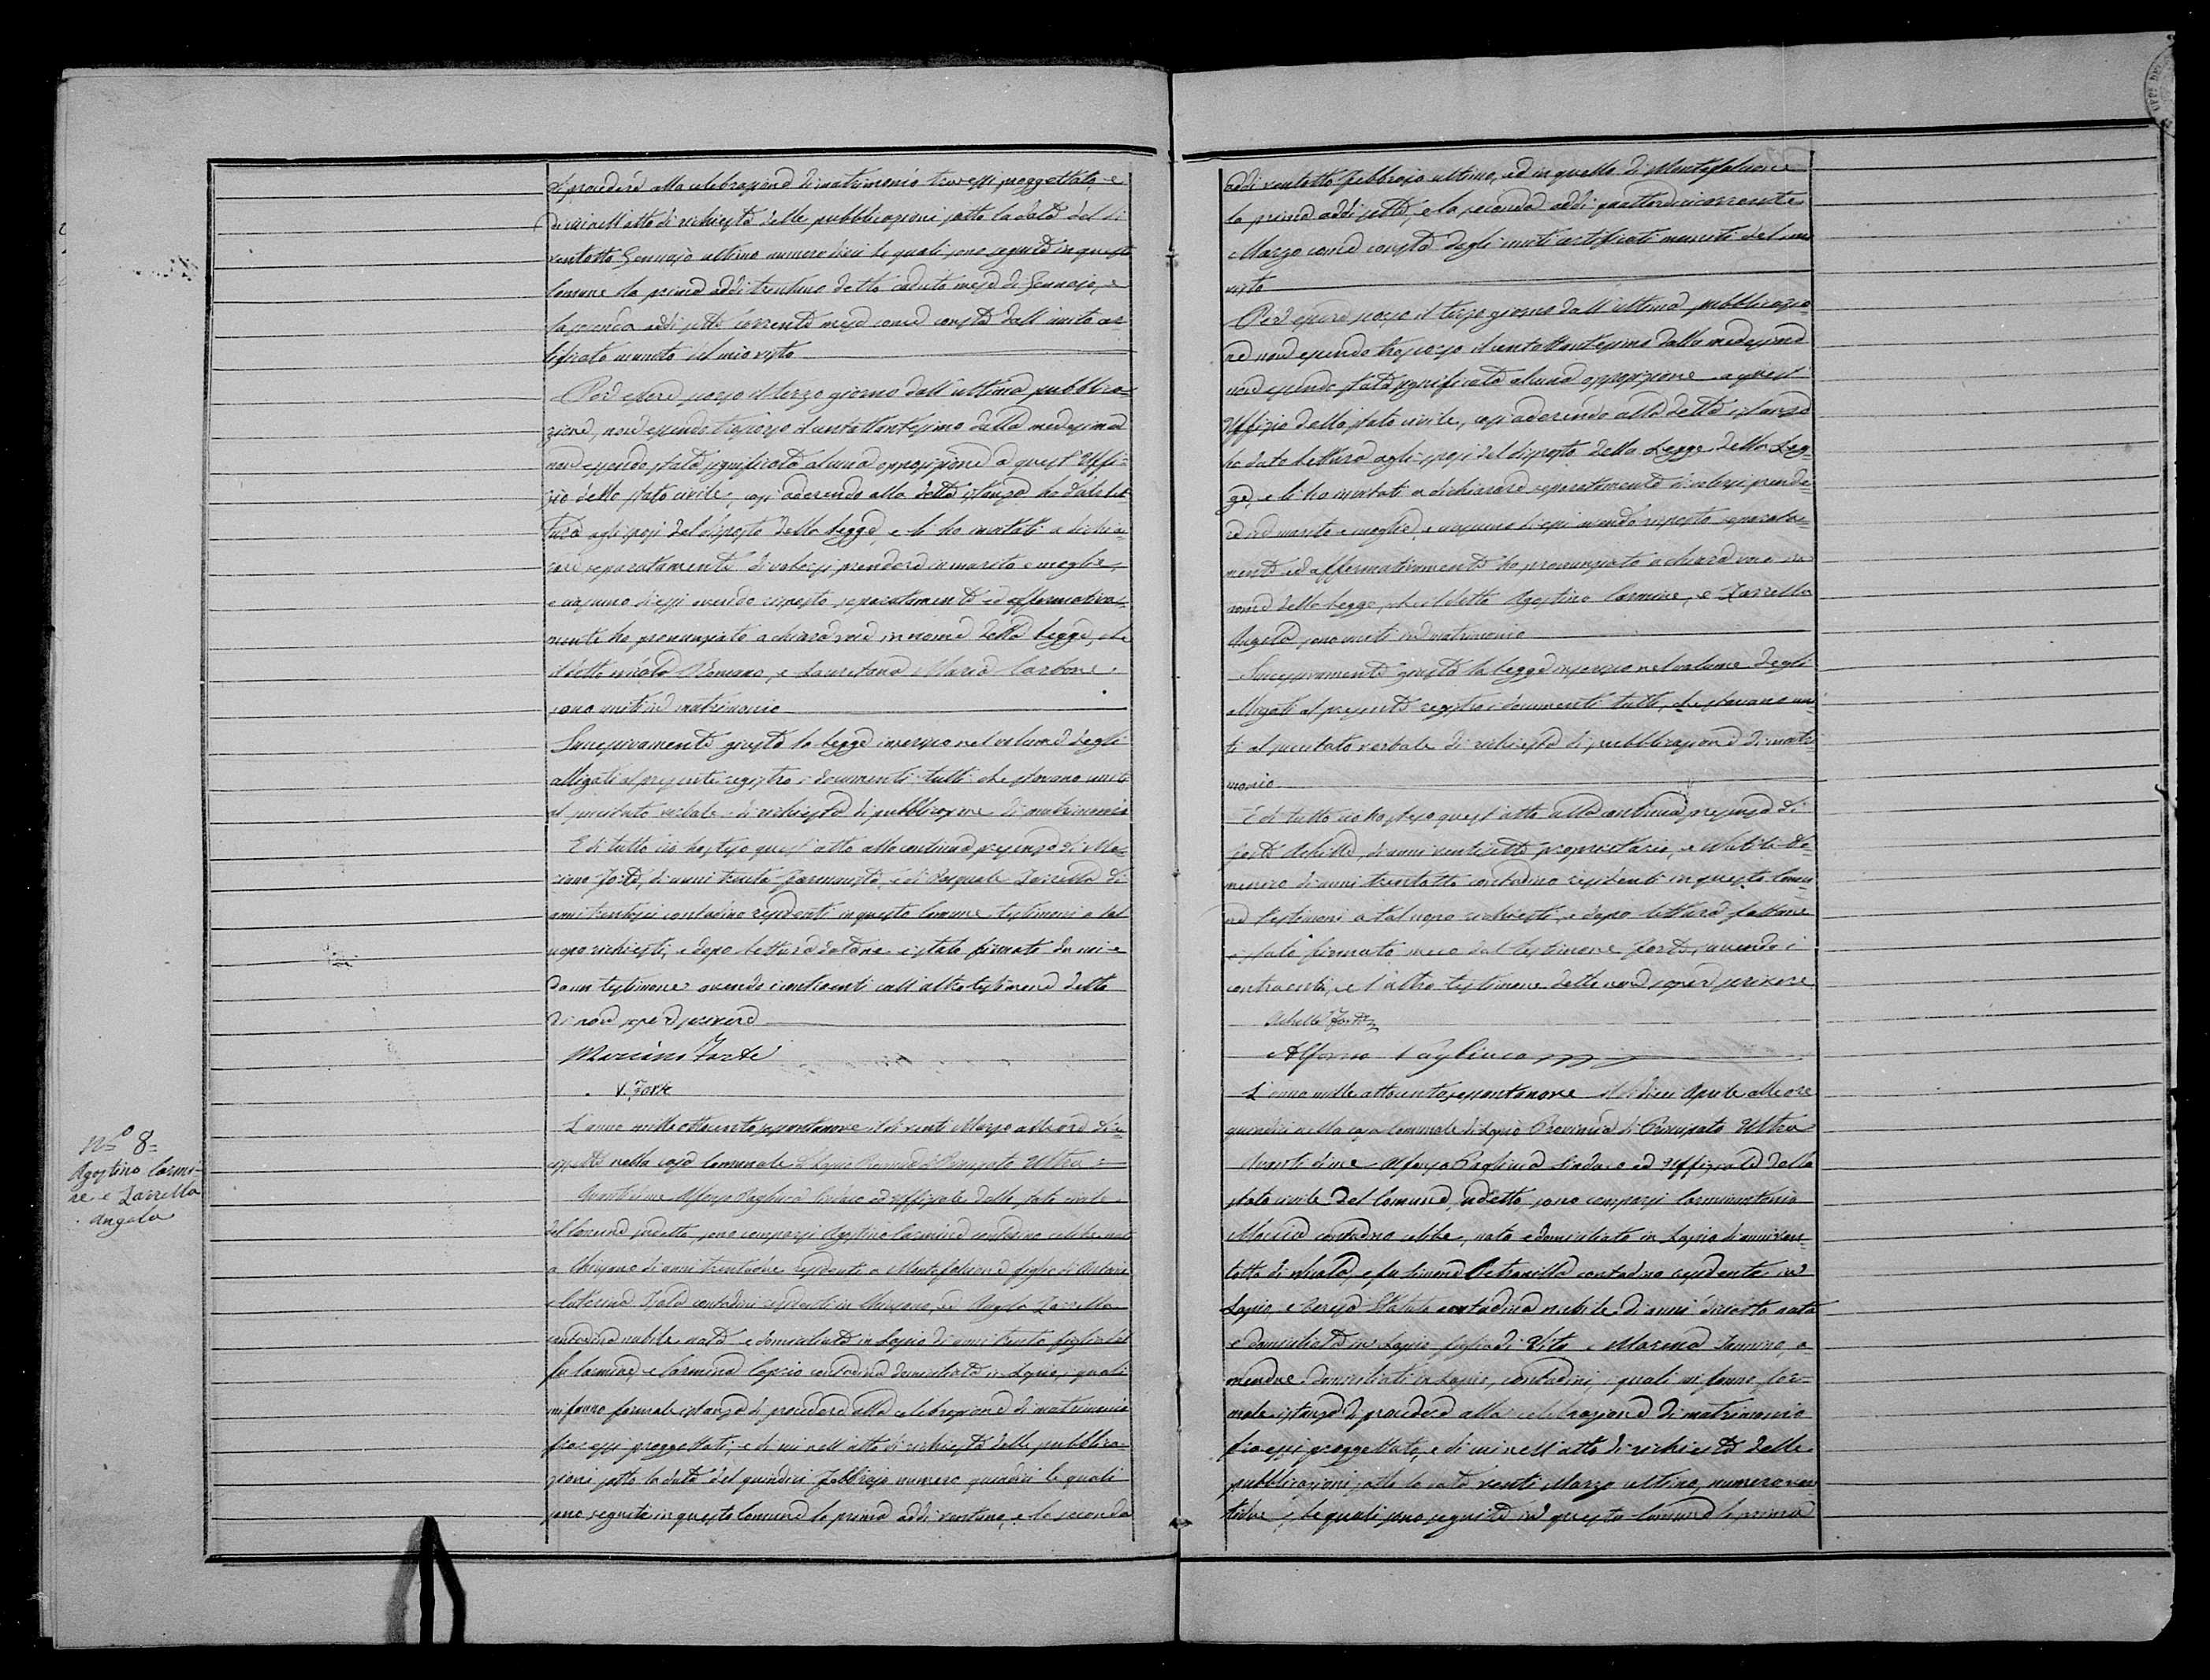 di procedere alla celebrazione di matrimonio tra essi proggettato, e
di cui nell'atto di richiesta delle pubblicazioni sotto la data del di
ventotto Gennajo ultimo numero dieci le quali sono seguite in questo
Comune la prima addi trentuno detto caduto mese di Gennajo, e
la seconda addi sette corrente mese come consta dall'unito cer
tificato munito del mio visto
Per essere scorso il terzo giorno dall'ultima pubblica-
zione, non essendo trascorso il centottantesimo dalla medesima
non essendo stata significata alcuna opposizione a quest'Uffi-
zio dello stato civile, così aderendo alla detta istanza ho dato let
tura agli sposi del disposto della Legge, e li ho invitati a dichia-
rare separatamente di volersi prendere in marito e moglie,
e ciascuno di essi avendo risposto separatamente ed affermativa-
mente ho pronunziato a chiara voce in nome della Legge, che
il detto Nicola Romano, e Lauretana Maria Carbone
sono uniti in matrimonio
Successivamente giusta la Legge inserisco nel volume degli
allegati al presente registro i documenti tutti che stavano uniti
al precitato verbale di richiesta di pubblicazione di matrimonio
E di tutto ciò ho steso quest'atto alla continua presenza di Ma-
riano Forte, di anni trenta farmacista, e di Pasquale Zarrella di
anni trentasei contadino residenti in questo Comune testimoni a tal
uopo richiesti, e dopo lettura datane è stato firmato da me e
da un testimone avendo i contraenti coll'altro testimone detto
di non sapere scrivere
Mariano Forte
V. Forte
Nº 8=
Agostino Carmi-
ne e Zarrella
Angela
L'anno milleottocentosessantanove il di venti Marzo alle ore di-
cissette nella casa Comunale di Lapio Provincia di Principato Ultra
Avanti di me Alfonso Pagliuca Sindaco ed Uffiziale dello stato civile
del Comune sudetto, sono comparsi Agostino Carmine contadino celibe nato
a Chiusano di anni trentadue residente a Montefalcione figlio di Antonio
e Caterina contadini residenti in Chiusano, ed Angela Zarrella
contadina nubile nata e domiciliata in Lapio di anni trenta figlia del
fu Carmine, e Carmina contadina domiciliata in Lapio, i quali
mi fanno formale istanza di procedere alla celebrazione di matrimonio
fra essi proggettati, e di cui nell'atto di richiesta delle pubblica
zioni sotto la data del quindici Febbrajo numero quindici le quali
sono seguite in questo Comune la prima addi ventuno, e la seconda
addi ventotto Febbrajo ultimo, ed in quello di Montefalcione
la prima addi sette, e la seconda addi quattordici corrente
Marzo come consta dagli uniti certificati muniti del mio
visto
Per essere scorso il terzo giorno dall'ultima pubblicazio-
ne non essendo trascorso il centottantesimo dalla medesima
non essendo stata significata alcuna opposizione a quest'
Uffizio dello stato civile, così aderendo alla detta istanza
ho dato lettura agli sposi del disposto della Legge della Leg-
ge, e li ho invitati a dichiarare separatamente di volersi prende-
re in marito e moglie, e ciascuno di essi avendo risposto separata-
mente ed affermativamente ho pronunziato a chiara voce in
nome della Legge, che il detto Agostino Carmine, e Zarrella
Angela, sono uniti in matrimonio
Successivamente giusta la Legge inserisco nel volume degli
allegati al presente registro i documenti tutti, che stavano uni
ti al precitato verbale di richiesta di pubblicazione di matri
monio
E di tutto ciò ho steso quest'atto alla continua presenza di
Forte Achille, di anni ventisette proprietario, e Do-
menico di anni trentotto contadino residenti in questo Comu-
ne testimoni a tal uopo richiesti, e dopo lettura fattane
è stato firmato meco dal testimone Forte, avendo i
contraenti, e l'altro testimone detto non sapere scrivere
Achille Forte
Alfonso Pagliuca
L'anno mille ottocentosessantanove il di dieci Aprile alle ore
quindici nella casa Comunale di Lapio Provincia di Principato Ultra
Avanti di me Alfonso Pagliuca Sindaco ed Uffiziale dello
stato civile del Comune sudetto, sono comparsi Carminantonio
contadino celibe, nato e domiciliato in Lapio di anni ven-
totto di Nicola, e fu Simona Petronilla contadino residente in
Lapio, e Teresa contadina nubile di anni diciotto nata
e domiciliata in Lapio figlia di Vito e Maria a
mendue domiciliati in Lapio, contadini, i quali mi fanno for-
male istanza di procedere alla celebrazione di matrimonio
fra essi proggettato, e di cui nell'atto di richiesta delle
pubblicazioni sotto la data venti Marzo ultimo, numero ven
tidue, le quali sono seguite in questo Comune la prima